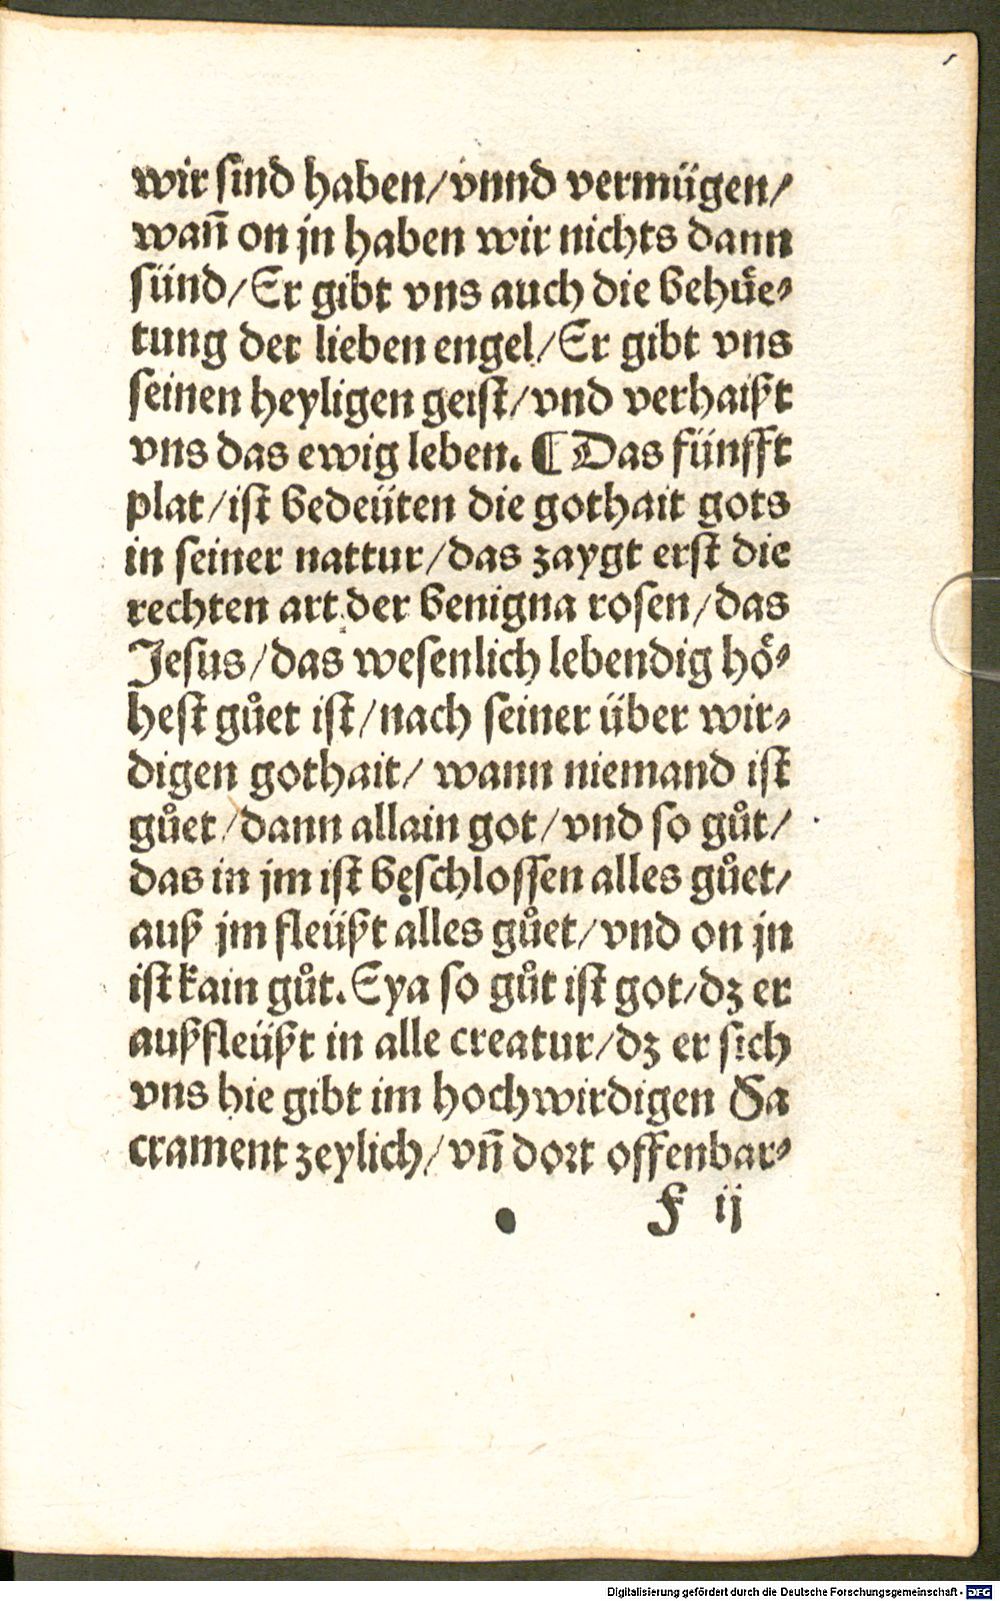 wir sind haben/ vnnd vermügen/
wañ on jn haben wir nichts dann
sünd/ Er gibt vns auch die behuͤe-
tung der lieben engel/ Er gibt vns
seinen heyligen geist/ vnd verhaißt
vns das ewig leben. ¶ Das fünfft
plat/ ist bedeüten die gothait gots
in seiner nattur/ das zaygt erst die
rechten art der benigna rosen/ das
Jesus/ das wesenlich lebendig hoͤ-
hest guͦet ist/ nach seiner über wir-
digen gothait/ wann niemand ist
guͦet/ dann allain got/ vnd so guͦt/
das in jm ist beschlossen alles guͦet/
auß jm fleüßt alles guͦet/ vnd on jn
ist kain guͦt. Eya so guͦt ist got/ dz er
außfleüßt in alle creatur/ dz er sich
vns hie gibt im hochwirdigen Sa
crament zeylich/ vñ dort offenbar-
F ij
Digitalisierung gefördert durch die Deutsche Forschungsgemeinschaft - DFG